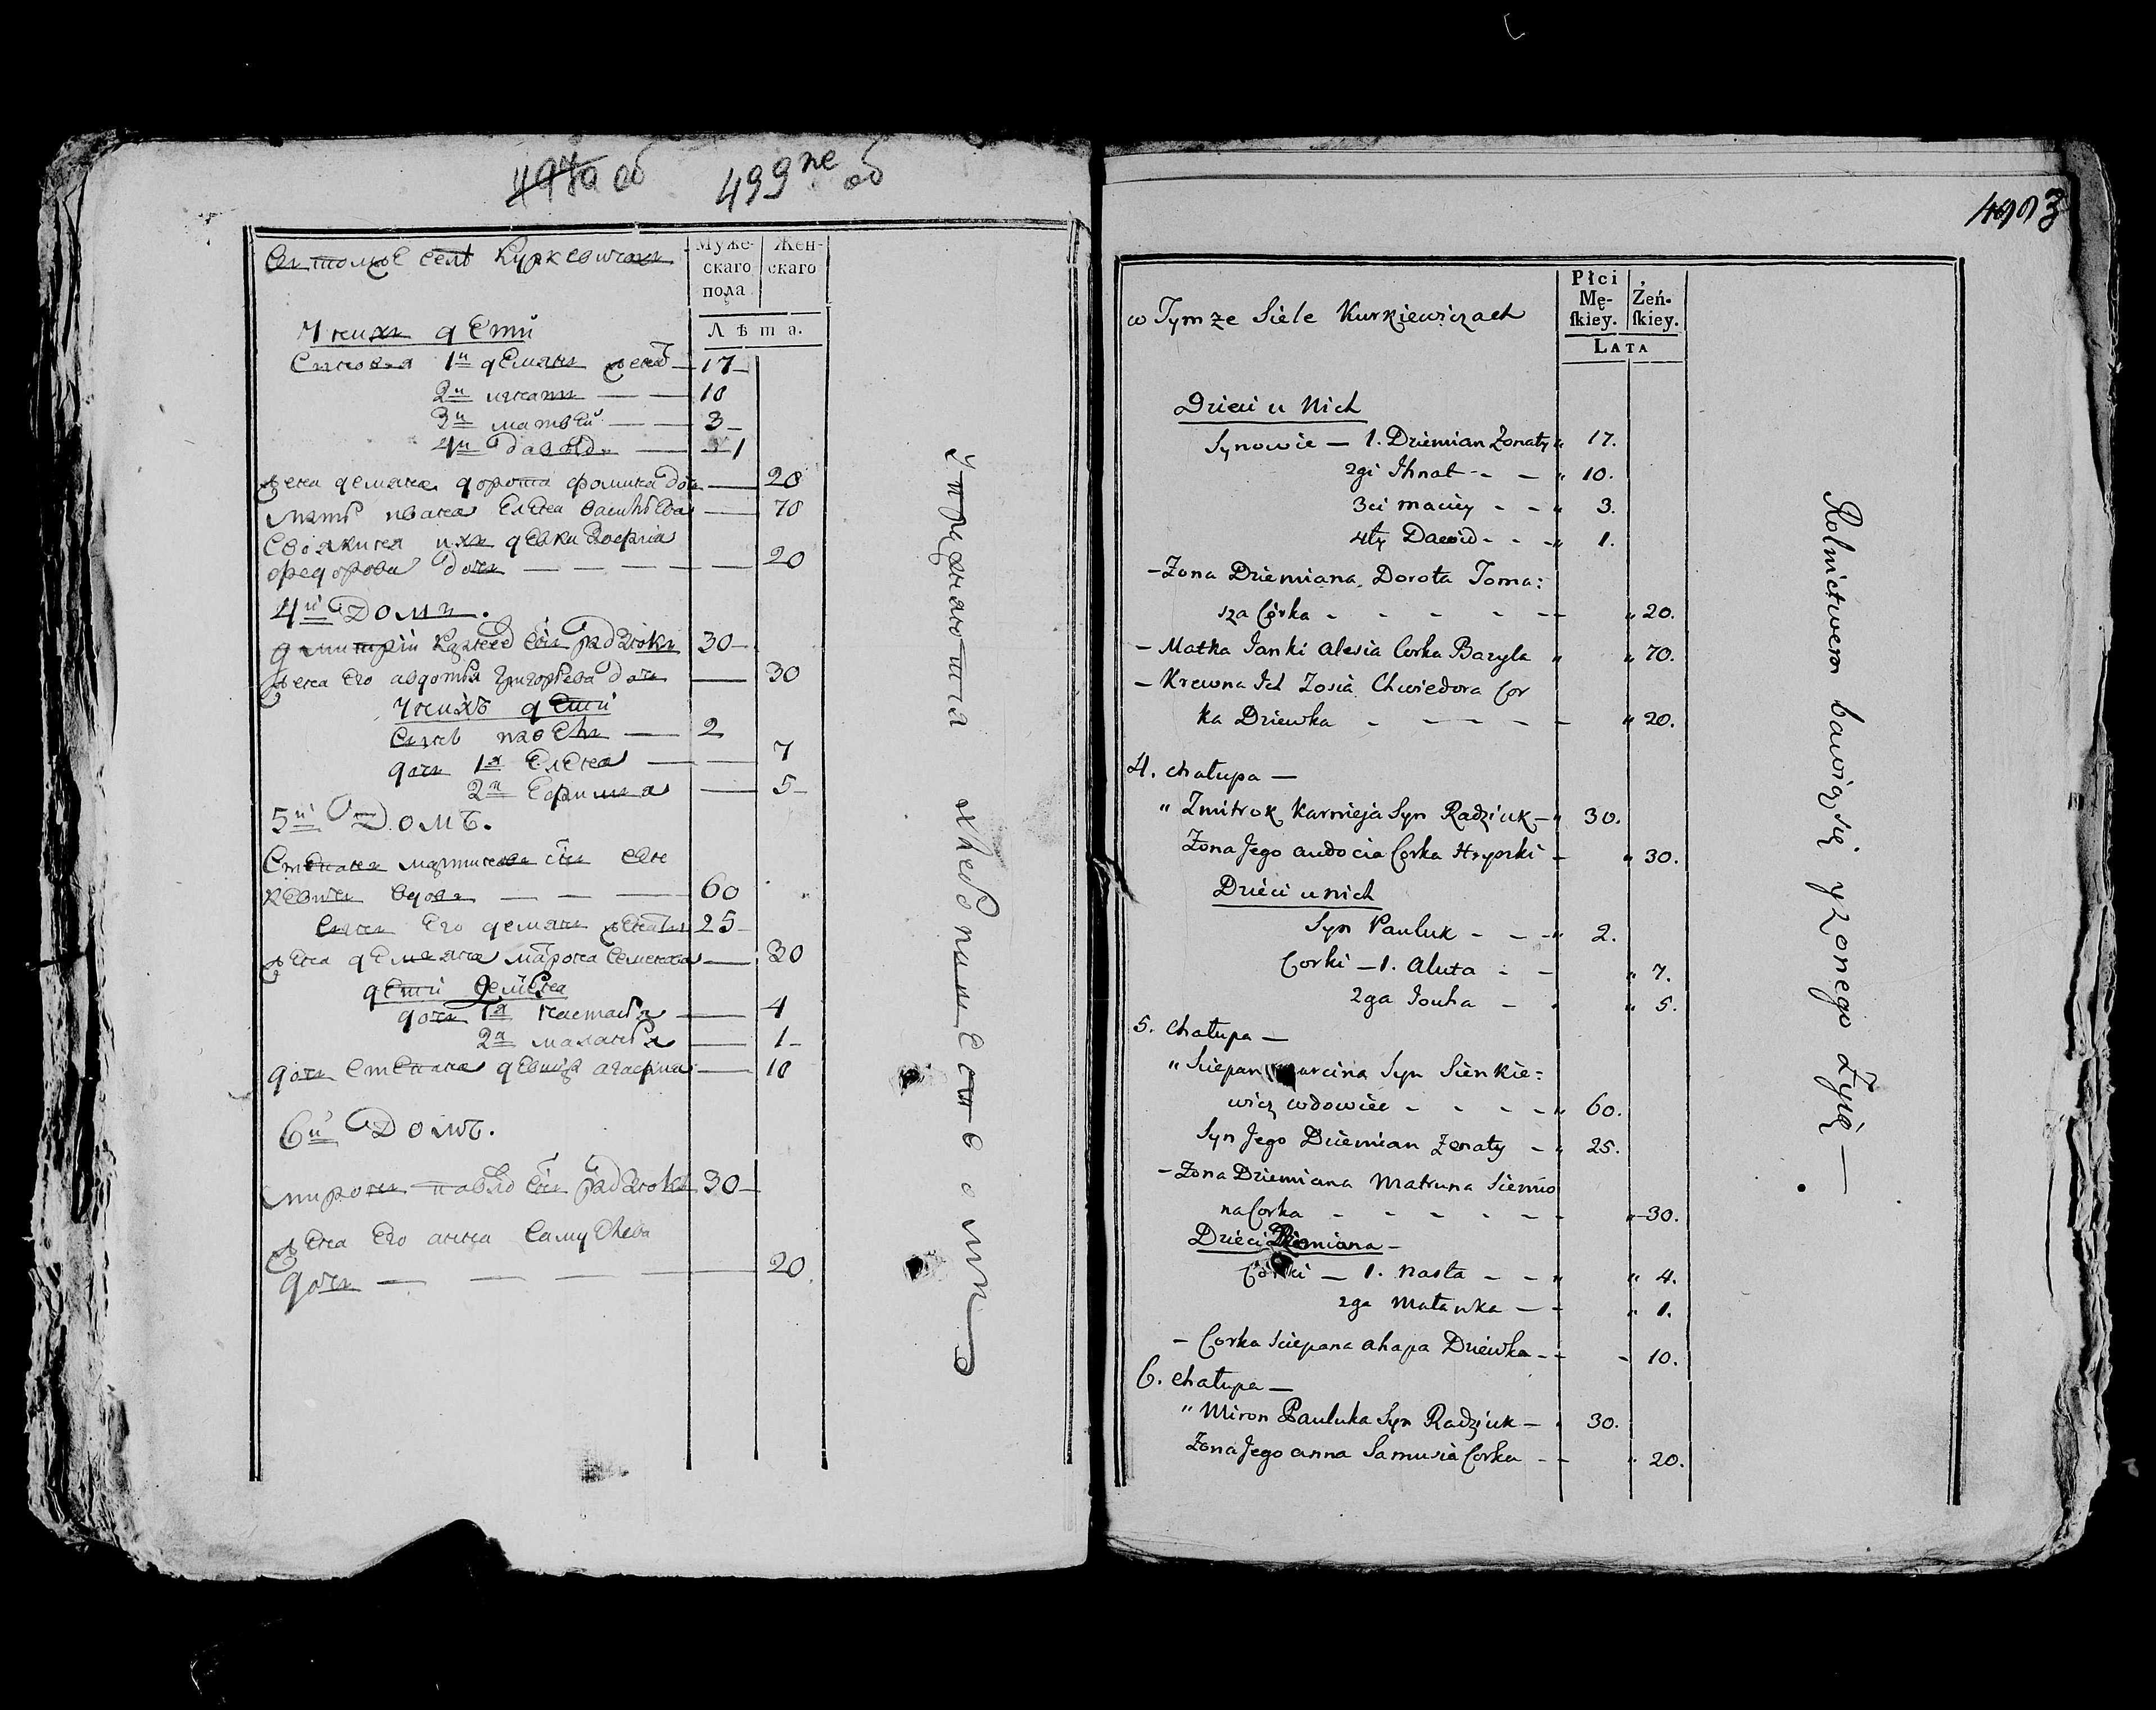 499 об
Въ томже селѣ Куркевичахъ
Муже-
скаго
пола
Жен-
скаго
Лѣта.
У нихъ дѣти
Сыновья 1й демянъ женатъ 17
2й игнатъ — — 10
3й матвей — — 3
4й давыдъ — 1
жена демяна дорота фомина дочь — 20
мать ивана елена васильева — 70
Своякиня ихъ девка зофия
федорова дочь — — — — — 20
4й Домъ.
дмитрий сынъ радзюкъ 30
жена его авдотья григорьева дочь — 30
У нихъ дѣти
Сынъ павелъ — 2
дочь 1я елена — — 7
2я ефимия — 5
5й Домъ.
Степанъ мартиновъ сынъ сень
кевичъ вдовъ — — — 60
Сынъ его демянъ женатъ 25
жена демяна матрона семенова — 30
дѣти демяна
дочь 1я настасья — 4
2я маланья — 1
дочь степана девица агафия — 10
6й Домъ.
миронъ павловъ сынъ радзюкъ 30
жена его анна самуйлова
дочь — — — — 20
упражняются хлебопашествомъ
4993
w Tymże Siele Kurkiewiczach
Płci
Mę-
ſkiey.
Żeń-
ſkiey.
LATA
Dzieci u Nich
Synowie — 1. Dziemian Żonaty „ 17.
2gi Ihnat - - „ 10.
3ci maciey - - „ 3.
4ty Dawid - - „ 1.
- Żona Dziemiana Dorota Toma:
sza Córka - - - - - „ 20.
- Matka Janki Alesia Corka Bazyla „ „ 70.
- Krewna Ich Zosia Chwiedora Cor
ka Dziewka - - - - - „ 20.
4. chałupa —
„ Zmitrok Karnieja Syn Radziuk — „ 30.
Żona Jego audocia Corka Hryszki - „ 30.
Dzieci u nich
Syn Pauluk - - „ 2.
Corki — 1. Aluta - - „ 7.
2ga Jouha - - „ 5.
5. chałupa —
„ Sciepan marcina Syn Sienkie:
wicz wdowiec - - - - „ 60.
Syn Jego Dziemian Żonaty - „ 25.
- Żona Dziemiana Matruna Siemio
na Corka - - - - - - „ 30.
Dzieci Dziemiana —
Córki — 1. Nasta - - „ „ 4.
2ga Małanka — - „ 1.
- Corka Sciepana ahapa Dziewka - - - 10.
6. chałupa —
„ Miron Pauluka Syn Radziuk — „ 30.
Żona Jego anna Samusia Corka - - „ 20.
Rolnictwem bawią się y z onego Żyią —